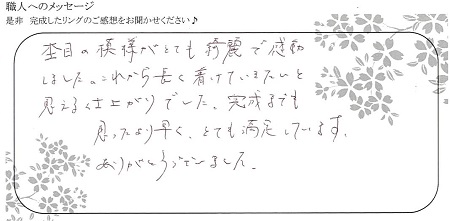 職人へのメッセージ
是非 完成したリングのご感想をお聞かせください♪
杢目の模様がとても綺麗で感動
しました。これから長く着けていきたいと
思える仕上がりでした。完成までも
思ったより早く、とても満足しています。
ありがとうございました。